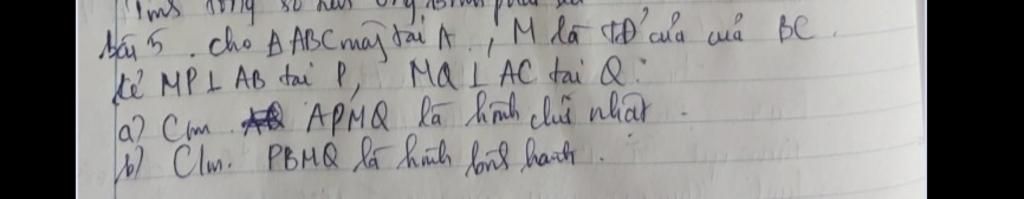 bài 5. cho ΔABC tại A., M là TĐ của BC.
kẻ MP⊥AB tại P, MQ⊥AC tại Q.
a) Cm APMQ là hình chữ nhật.
b) C/m. PBMQ là hình bình hành.